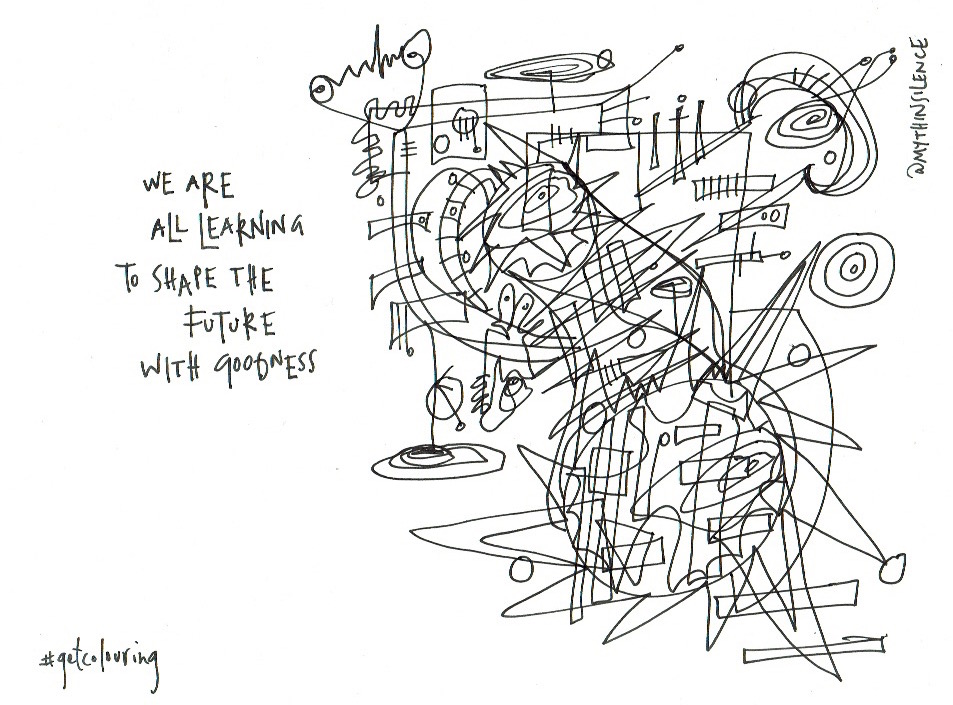 WE ARE
ALL LEARNING
TO SHAPE THE
FUTURE
WITH GOODNESS
#getcolouring
@MYTHINSILENCE